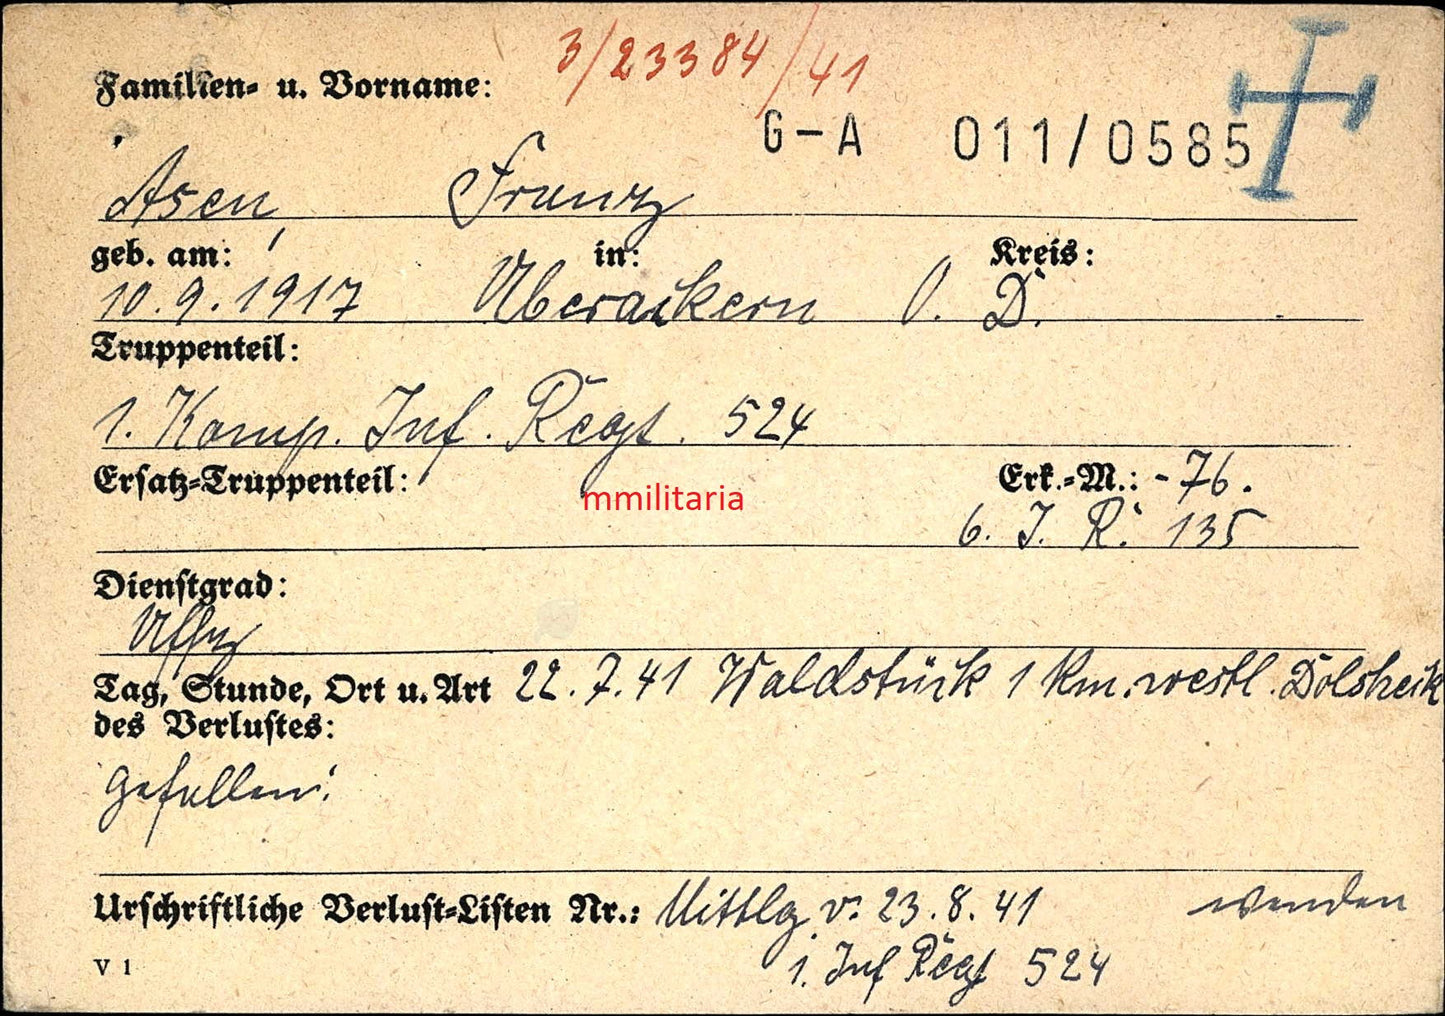 3/23384/41
Familien- u. Vorname:
G-A 011/0585
Asen, Franz
geb. am: in: Kreis:
10.9.1917 Überackern O. D.
Truppenteil:
1. Komp. Inf. Regt. 524
Ersatz-Truppenteil: Erk.-M.: -76.
mmilitaria
6. J. R. 135
Dienstgrad:
Uffz
Tag, Stunde, Ort u. Art 22.7.41 Waldstück 1 km. westl.
des Verlustes:
gefallen.
Urschriftliche Verlust-Listen Nr.: Mittlg v. 23.8.41 wenden
1. Inf Regt 524
V 1